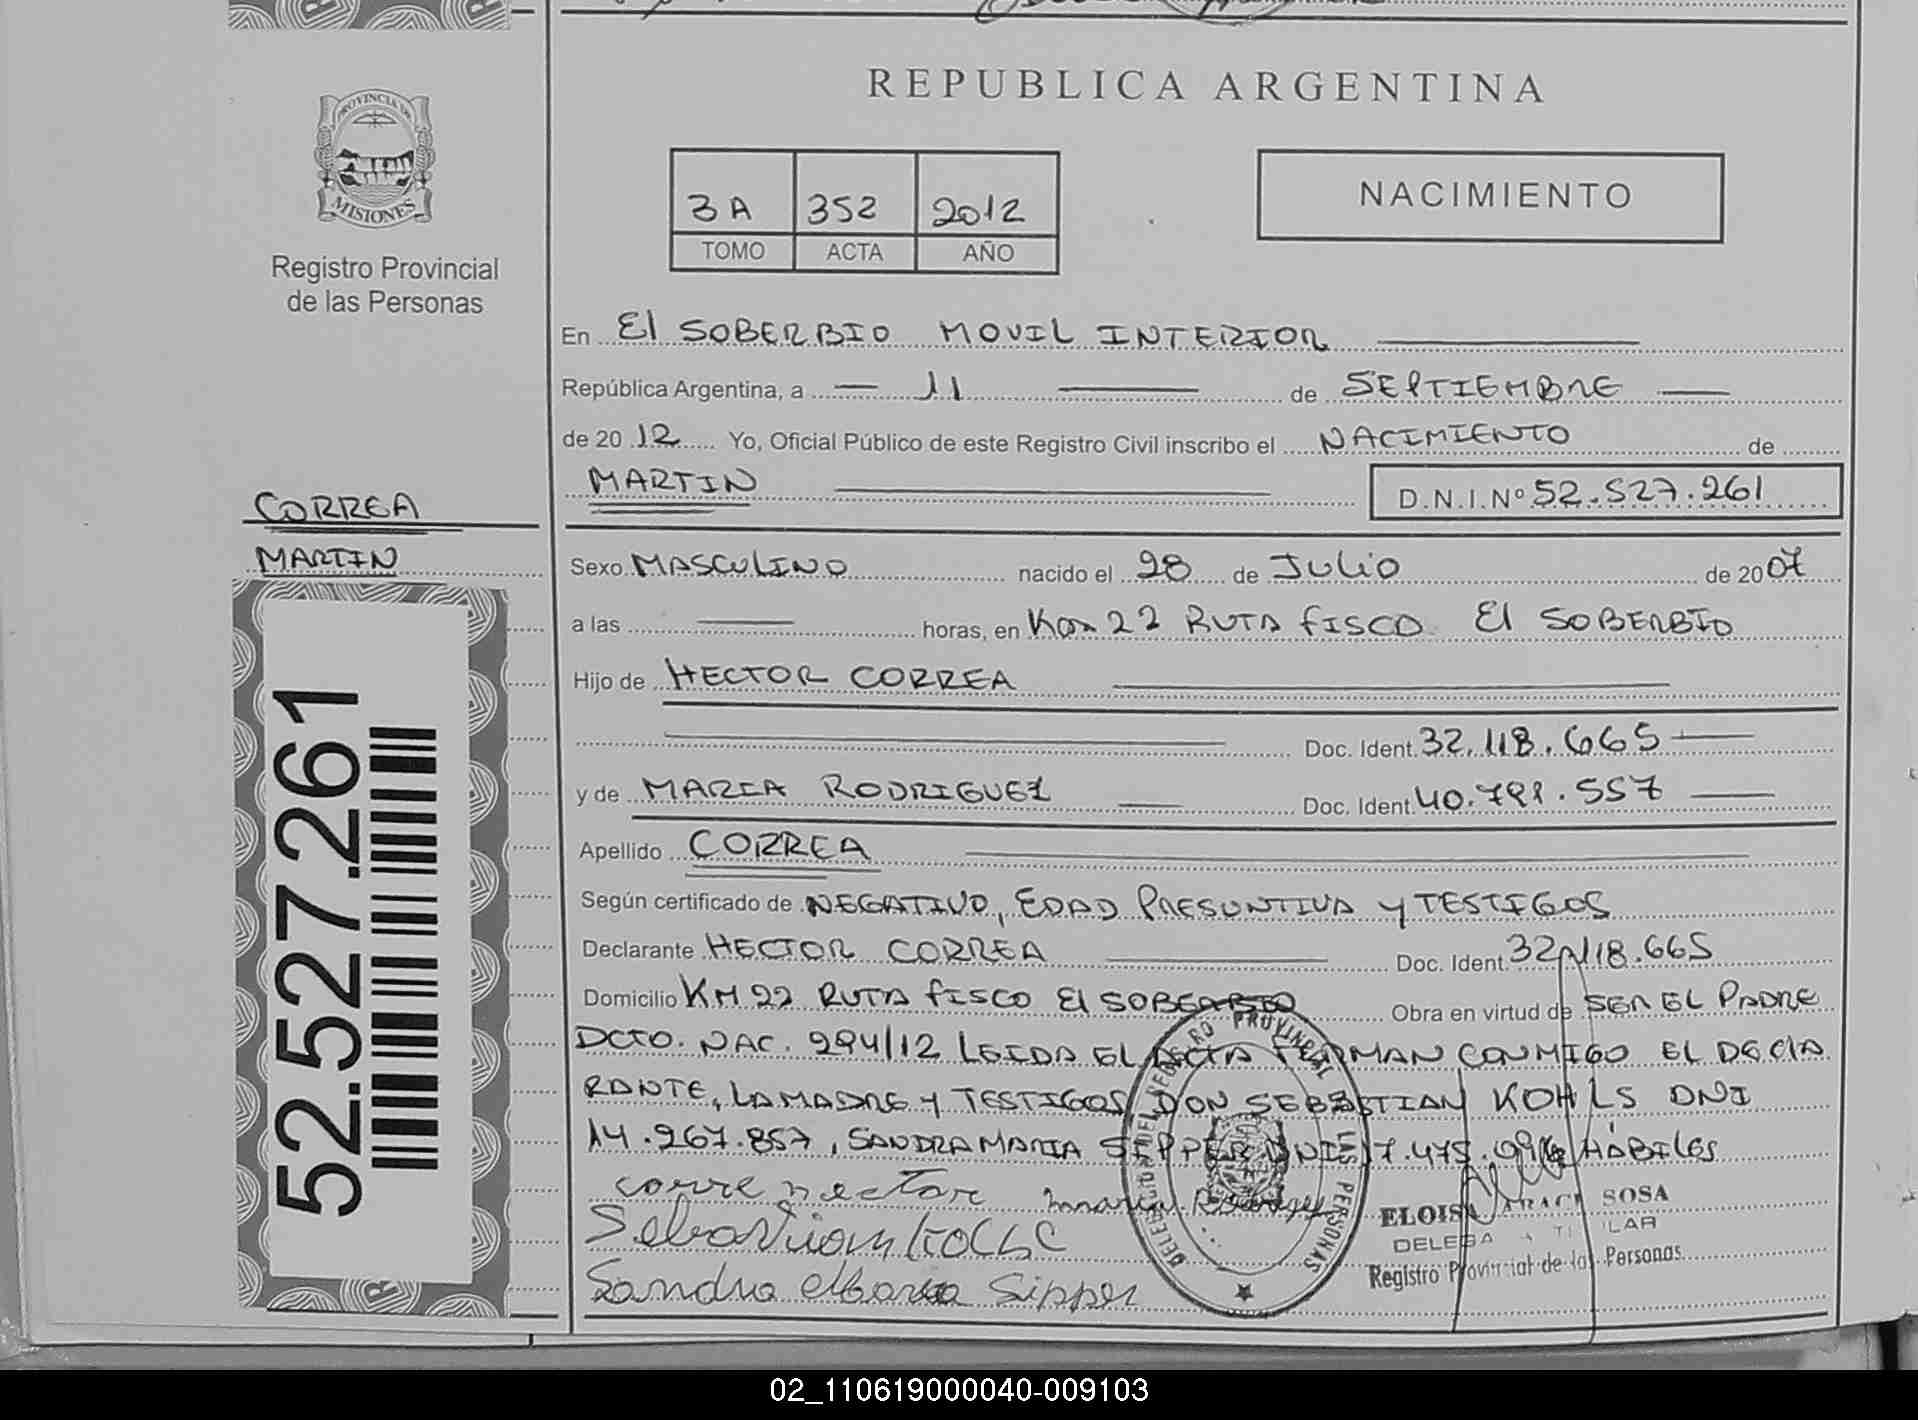 REPUBLICA ARGENTINA
PROVINCIA DE
MISIONES
Registro Provincial
de las Personas
3A 352 2012
TOMO ACTA AÑO
NACIMIENTO
En El SOBERBIO MOVIL INTERIOR
República Argentina, a 11 de SEPTIEMBRE
de 2012 Yo, Oficial Público de este Registro Civil inscribo el NACIMIENTO de
MARTIN D.N.I.Nº 52.527.261
CORREA
MARTIN
52.527.261
Sexo MASCULINO nacido el 28 de Julio de 2007
a las horas, en Km 22 RUTA fISCO El SOBERBIO
Hijo de HECTOR CORREA
Doc. Ident. 32.118.665
y de MARIA RODRIGUEZ Doc. Ident. 40.791.557
Apellido CORREA
Según certificado de NEGATIVO, EDAD PRESUNTIVA y TESTIGOS
Declarante HECTOR CORREA Doc. Ident. 32.118.665
Domicilio KM 22 RUTA fISCO El SOBERBIO Obra en virtud de SER EL PADRE
DCTO. NAC. 294/12 LEIDA EL ACTA FIRMAN CONMIGO EL DECLA
RANTE, LA MADRE Y TESTIGOS DON SEBASTIAN KOHLS DNI
14.267.857, SANDRA MARIA SIPPER DNI 17.475. HÁBILES
corre hector maria
Sebastian
Sandra Sipper
REGISTRO PROVINCIAL DE LAS PERSONAS
ELOISA ARACI SOSA
DELEGADA TITULAR
Registro Provincial de las Personas
02_110619000040-009103